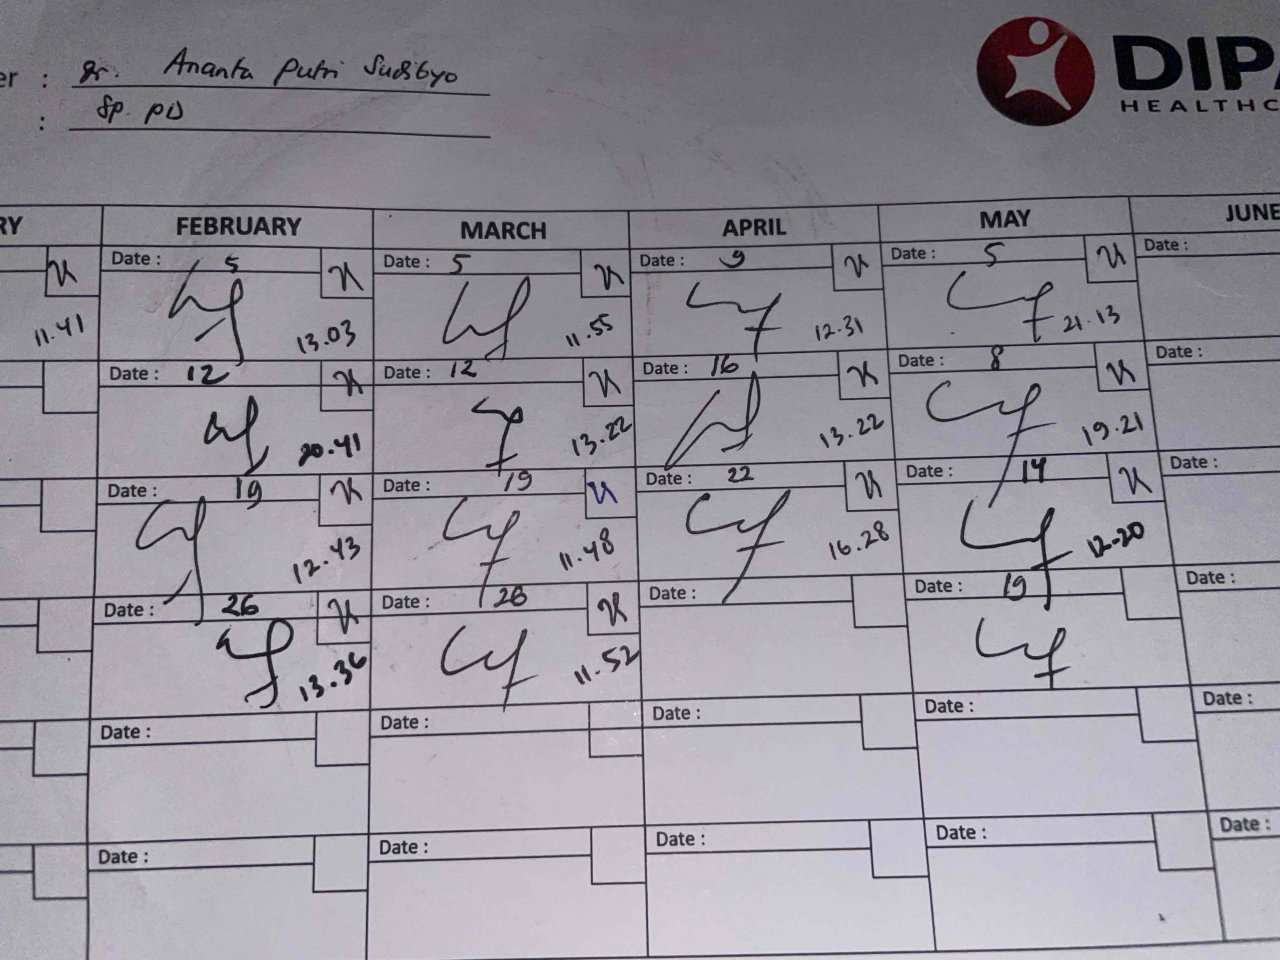 er : dr. Ananta Putri Sudibyo
: Sp. PD
DIPA
HEALTHC
RY FEBRUARY MARCH APRIL MAY JUNE
Date : 5 Date : 5 Date : 9 Date : 5 Date :
11.41 13.03 11.55 12.31 21.13
Date : 12 Date : 12 Date : 16 Date : 8 Date :
20.41 13.22 13.22 19.21
Date : 19 Date : 19 Date : 22 Date : 14 Date :
12.43 11.48 16.28 12-20
Date : 26 Date : 28 Date : Date : 19 Date :
13.36 11.52
Date : Date : Date : Date : Date :
Date : Date : Date : Date : Date :